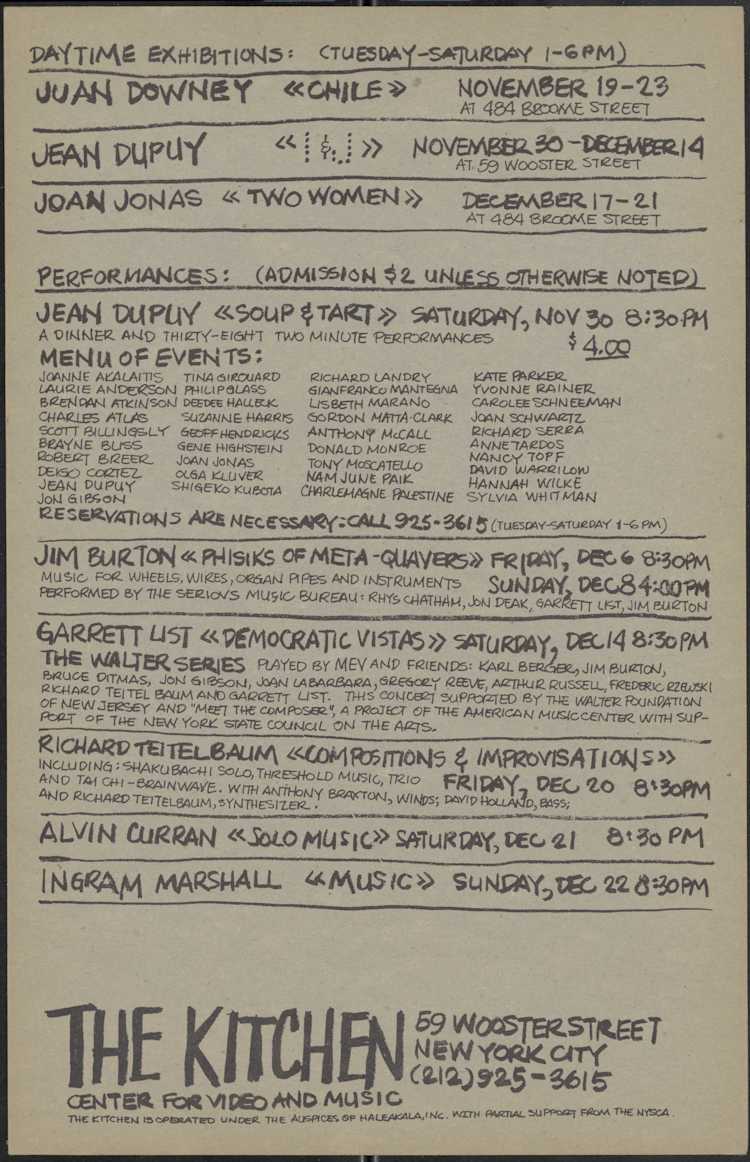 DAYTIME EXHIBITIONS: (TUESDAY-SATURDAY 1-6PM)
JUAN DOWNEY «CHILE» NOVEMBER 19-23
AT 484 BROOME STREET
JEAN DUPUY « & » NOVEMBER 30 - DECEMBER 14
AT 59 WOOSTER STREET
JOAN JONAS «TWO WOMEN» DECEMBER 17-21
AT 484 BROOME STREET
PERFORMANCES: (ADMISSION $2 UNLESS OTHERWISE NOTED)
JEAN DUPUY «SOUP & TART» SATURDAY, NOV 30 8:30PM
A DINNER AND THIRTY-EIGHT TWO MINUTE PERFORMANCES $4.00
MENU OF EVENTS:
JOANNE AKALAITIS TINA GIROUARD RICHARD LANDRY KATE PARKER
LAURIE ANDERSON PHILIP GLASS GIANFRANCO MANTEGNA YVONNE RAINER
BRENDAN ATKINSON DEEDEE HALLECK LISBETH MARANO CAROLEE SCHNEEMAN
CHARLES ATLAS SUZANNE HARRIS GORDON MATTA-CLARK JOAN SCHWARTZ
SCOTT BILLINGSLY GEOFF HENDRICKS ANTHONY McCALL RICHARD SERRA
BRAYNE BLISS GENE HIGHSTEIN DONALD MONROE ANNE TARDOS
ROBERT BREER JOAN JONAS TONY MOSCATELLO NANCY TOPF
DEIGO CORTEZ OLGA KLUVER NAM JUNE PAIK DAVID WARRILOW
JEAN DUPUY SHIGEKO KUBOTA CHARLEMAGNE PALESTINE HANNAH WILKE
JON GIBSON SYLVIA WHITMAN
RESERVATIONS ARE NECESSARY: CALL 925-3615 (TUESDAY-SATURDAY 1-6 PM)
JIM BURTON «PHISIKS OF META-QUAVERS» FRIDAY, DEC 6 8:30PM
MUSIC FOR WHEELS, WIRES, ORGAN PIPES AND INSTRUMENTS SUNDAY, DEC 8 4:00PM
PERFORMED BY THE SERIOVS MUSIC BUREAU: RHYS CHATHAM, JON DEAK, GARRETT LIST, JIM BURTON
GARRETT LIST «DEMOCRATIC VISTAS» SATURDAY, DEC 14 8:30PM
THE WALTER SERIES PLAYED BY MEV AND FRIENDS: KARL BERGER, JIM BURTON,
BRUCE DITMAS, JON GIBSON, JOAN LABARBARA, GREGORY REEVE, ARTHUR RUSSELL, FREDERIC RZEWSKI
RICHARD TEITELBAUM AND GARRETT LIST. THIS CONCERT SUPPORTED BY THE WALTER FOUNDATION
OF NEW JERSEY AND "MEET THE COMPOSER", A PROJECT OF THE AMERICAN MUSIC CENTER WITH SUP-
PORT OF THE NEW YORK STATE COUNCIL ON THE ARTS.
RICHARD TEITELBAUM «COMPOSITIONS & IMPROVISATIONS»
INCLUDING: SHAKUBACHI SOLO, THRESHOLD MUSIC, TRIO FRIDAY, DEC 20 8:30PM
AND TAI CHI-BRAINWAVE. WITH ANTHONY BRAXTON, WINDS; DAVID HOLLAND, BASS;
AND RICHARD TEITELBAUM, SYNTHESIZER.
ALVIN CURRAN «SOLO MUSIC» SATURDAY, DEC 21 8:30 PM
INGRAM MARSHALL «MUSIC» SUNDAY, DEC 22 8:30PM
THE KITCHEN
59 WOOSTER STREET
NEW YORK CITY
(212) 925-3615
CENTER FOR VIDEO AND MUSIC
THE KITCHEN IS OPERATED UNDER THE AUSPICES OF HALEAKALA, INC. WITH PARTIAL SUPPORT FROM THE NYSCA.